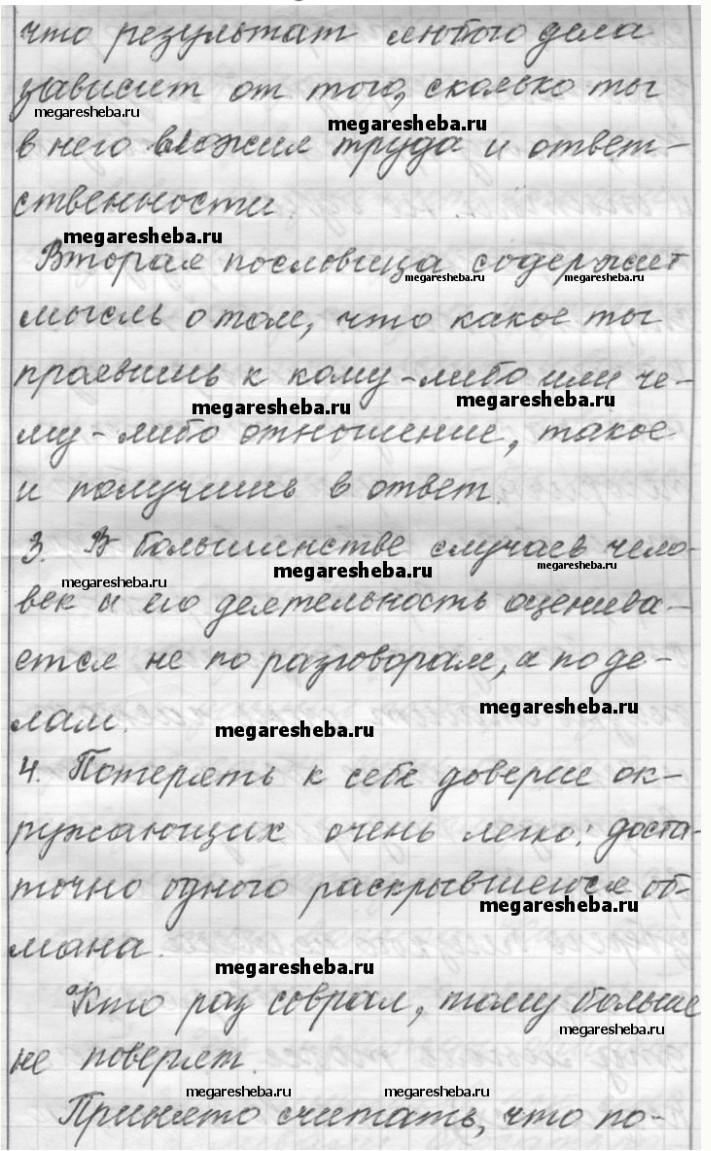 что результат любого дела
зависит от того, сколько ты
megaresheba.ru
megaresheba.ru
в него вложил труда и ответ-
ственности.
megaresheba.ru
Вторая пословица содержит
megaresheba.ru megaresheba.ru
мысль о том, что какое ты
проявишь к кому-либо или че-
megaresheba.ru megaresheba.ru
му-либо отношение, такое
и получишь в ответ.
3. В большинстве случаев чело-
megaresheba.ru megaresheba.ru megaresheba.ru
век и его деятельность оценива-
ется не по разговорам, а по де-
megaresheba.ru
лам.
megaresheba.ru
4. Потерять к себе доверие ок-
ружающих очень легко: доста-
точно одного раскрывшегося об-
megaresheba.ru
мана.
megaresheba.ru
Кто раз соврал, тому больше
megaresheba.ru
не поверят.
megaresheba.ru megaresheba.ru
Принято считать, что по-